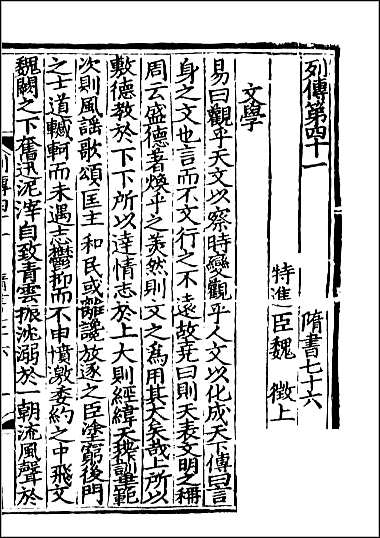 列傳第四十一 隋書七十六
特進臣魏 徵上
文學
易曰觀乎天文以察時變觀乎人文以化成天下傳曰言
身之文也言而不文行之不遠故堯曰則天表文明之稱
周云盛德著煥乎之美然則文之爲用其大矣哉上所以
敷德教於下下所以達情志於上大則經緯天地作訓垂範
次則風謠歌頌匡主和民或離讒放逐之臣塗窮後門
之士道轗軻而未遇志鬱抑而不申憤激委約之中飛文
魏闕之下奮迅泥滓自致青雲振沈溺於一朝流風聲於